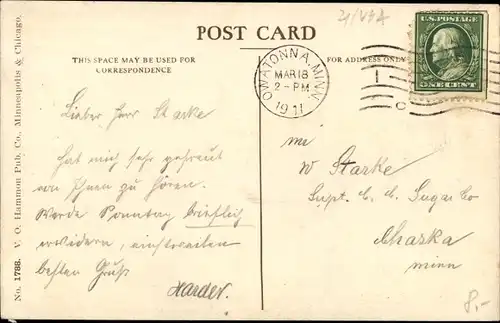 21/VSA
POST CARD
THIS SPACE MAY BE USED FOR
CORRESPONDENCE
FOR ADDRESS ONLY
OWATONNA, MINN.
MAR 18
2-PM
1911
U.S. POSTAGE
ONE CENT
Lieber Herr Starke
hat mich sehr gefreut
von Ihnen zu hören.
Werde Sonntag brieflich
erwidern, einstweilen
besten Gruß
Harder.
W Starke
Supt. C. d. Sugar Co
Chaska
Minn
8.-
No. 1788. V. O. Hammon Pub. Co., Minneapolis & Chicago.